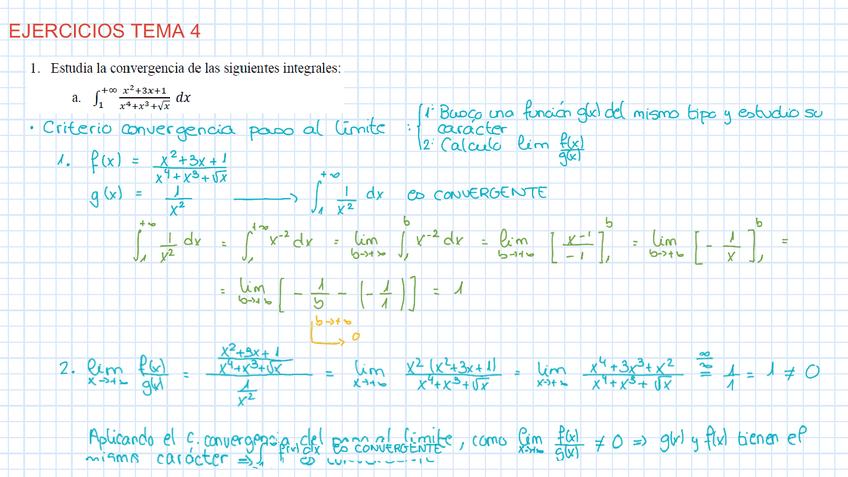 EJERCICIOS TEMA 4
1. Estudia la convergencia de las siguientes integrales:
a. ∫₁^{+∞} (x²+3x+1)/(x⁴+x³+√x) dx
· Criterio convergencia paso al límite : { 1: Busco una función g(x) del mismo tipo y estudio su
carácter
2: Calculo lim f(x)/g(x)
1. f(x) = (x²+3x+1)/(x⁴+x³+√x)
g(x) = 1/x² → ∫₁^{+∞} 1/x² dx es CONVERGENTE
∫₁^{+∞} 1/x² dx = ∫₁^{+∞} x⁻² dx = lim_{b→+∞} ∫₁^b x⁻² dx = lim_{b→+∞} [x⁻¹/-1]₁^b = lim_{b→+∞} [-1/x]₁^b =
= lim_{b→+∞} [-1/b - (-1/1)] = 1
b→+∞
0
2. lim_{x→+∞} f(x)/g(x) = ((x²+3x+1)/(x⁴+x³+√x))/(1/x²) = lim_{x→+∞} x²(x²+3x+1)/(x⁴+x³+√x) = lim_{x→+∞} (x⁴+3x³+x²)/(x⁴+x³+√x) =^{∞/∞} 1/1 = 1 ≠ 0
Aplicando el C. convergencia del paso al límite, como lim_{x→+∞} f(x)/g(x) ≠ 0 ⇒ g(x) y f(x) tienen el
mismo carácter ⇒ ∫₁ f(x)dx es CONVERGENTE